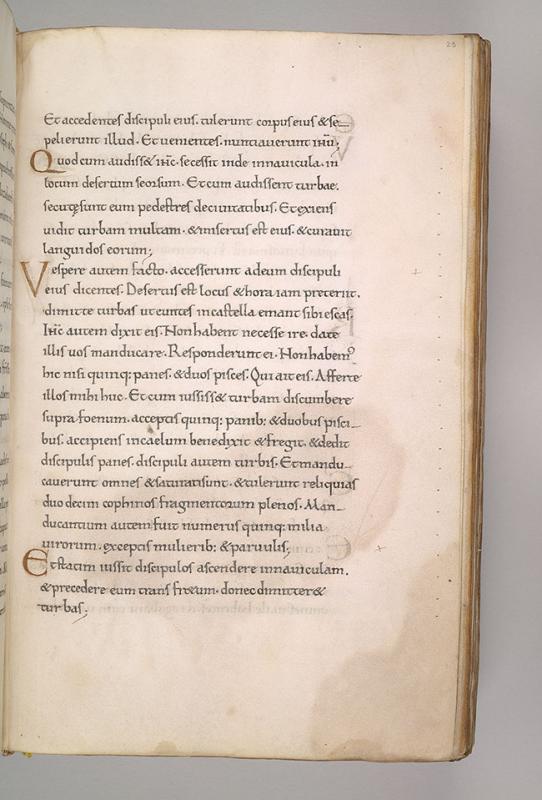 23
Et accedentes discipuli eius. tulerunt corpus eius & se-
pelierunt illud. Et uenientes. nuntiauerunt ihu;
Quod cum audiss& ihc. secessit inde in nauicula. in
locum desertum seorsum. Et cum audissent turbae.
secutęsunt eum pedestres de ciuitatibus. Et exiens
uidit turbam multam. & misertus est eius. & curauit
languidos eorum;
Vespere autem facto. accesserunt ad eum discipuli
eius dicentes. Desertus est locus & hora iam preterut.
dimitte turbas ut euntes in castella emant sibi escas.
Ihc autem dixit eis. Non habent necesse ire. date
illis uos manducare. Responderunt ei. Non habem'
hic nisi quinq: panes. & duos pisces. Qui ait eis. Afferte
illos mihi huc. Et cum iussiss& turbam discumbere
supra foenum. acceptis quinq: panib: & duobus pisci-
bus. accipiens in caelum benedixit & fregit. & dedit
discipulis panes. discipuli autem turbis. Et mandu-
cauerunt omnes & saturati sunt. & tulerunt reliquias
duodecim cophinos fragmentorum plenos. Man-
ducantium autem fuit numerus quinq: milia
uirorum. exceptis mulierib: & paruulis;
Et statim iussit discipulos ascendere in nauiculam.
& precedere eum trans fr&um. donec dimitter&
turbas;